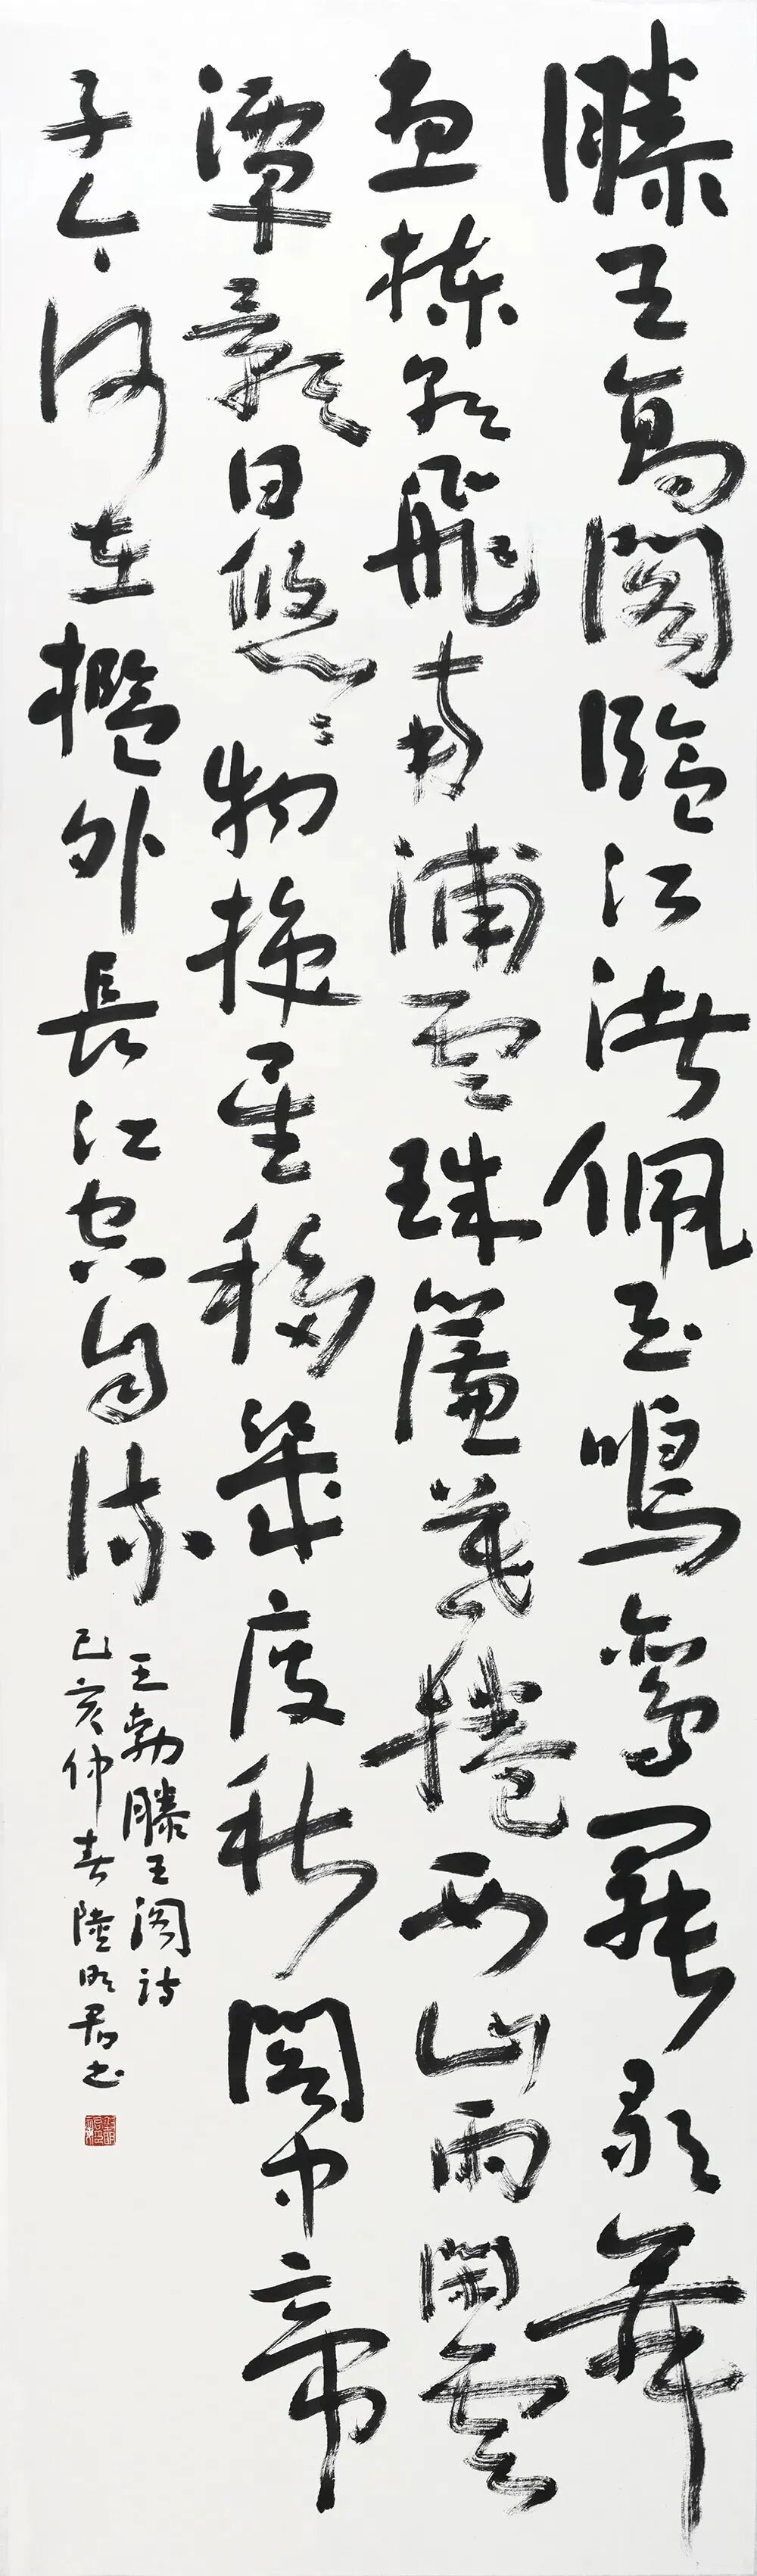 滕王高閣臨江渚佩玉鳴鸞罷歌舞
画棟朝飛南浦雲珠簾暮捲西山雨閑雲
潭影日悠〻物換星移幾度秋閣中帝
子今何在檻外長江空自流
王勃滕王閣詩
己亥仲春陸明君书